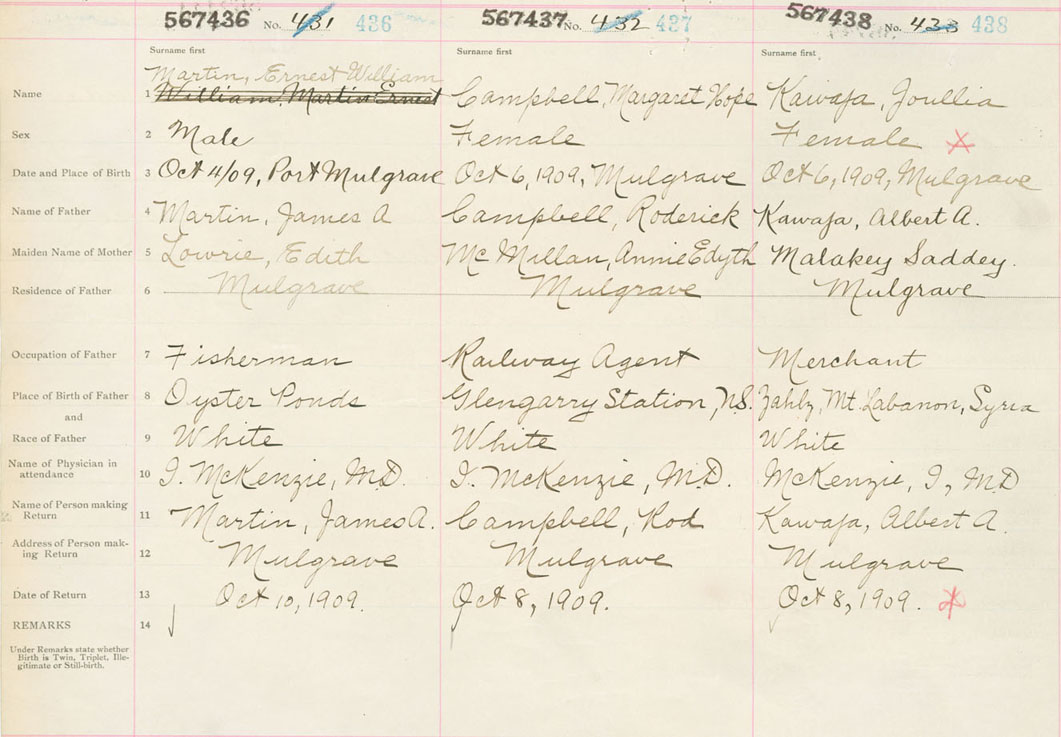 567436 No. 431 436 567437 No. 432 437 567438 No. 433 438
Surname first Surname first Surname first
Martin, Ernest William
Name 1 William Martin Ernest Campbell, Margaret Hope Kawaja, Joullia
Sex 2 Male Female Female
Date and Place of Birth 3 Oct 4/09, Port Mulgrave Oct 6, 1909, Mulgrave Oct 6, 1909, Mulgrave
Name of Father 4 Martin, James A Campbell, Roderick Kawaja, Albert A.
Maiden Name of Mother 5 Lowrie, Edith McMillan, Annie Edyth Malakey Saddey.
Residence of Father 6 Mulgrave Mulgrave Mulgrave
Occupation of Father 7 Fisherman Railway Agent Merchant
Place of Birth of Father 8 Oyster Ponds Glengarry Station, N.S. Zahly, Mt. Labanon, Syria
and
Race of Father 9 White White White
Name of Physician in
attendance 10 I. McKenzie, M.D. I. McKenzie, M.D. McKenzie, I, M.D
Name of Person making
Return 11 Martin, James A. Campbell, Rod Kawaja, Albert A.
Address of Person mak-
ing Return 12 Mulgrave Mulgrave Mulgrave
Date of Return 13 Oct 10, 1909. Oct 8, 1909. Oct 8, 1909.
REMARKS 14
Under Remarks state whether
Birth is Twin, Triplet, Ille-
gitimate or Still-birth.